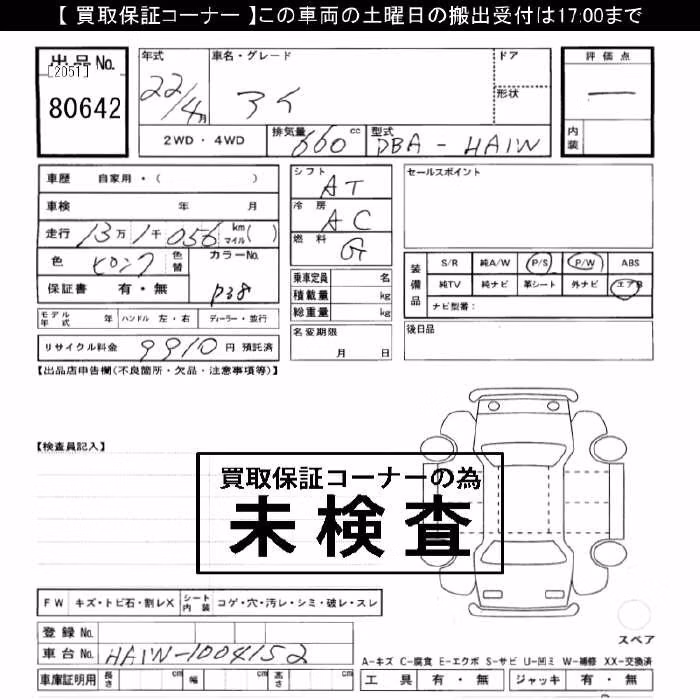 【 買取保証コーナー 】この車両の土曜日の搬出受付は17:00まで
出品No.
[2051]
80642
年式 22/4月
車名・グレード アイ
ドア
形状
評価点
ー
内装
2WD・4WD
排気量 660 cc
型式 DBA-HA1W
車歴 自家用・( )
車検 年 月
走行 13万1千056 km マイル( )
色 ピンク 色替
カラーNo. P38
保証書 有・無
モデル年式 年 ハンドル 左・右 ディーラー・並行
リサイクル料金 9910 円 預託済
シフト AT
冷房 AC
燃料 G
乗車定員 名
積載量 kg
総重量 kg
名変期限 月 日
セールスポイント
装備品
S/R 純A/W P/S P/W ABS
純TV 純ナビ 革シート 外ナビ エアB
ナビ型番:
後日品
【出品店申告欄(不良箇所・欠品・注意事項等)】
【検査員記入】
買取保証コーナーの為
未検査
FW キズ・トビ石・割レX シート内装 コゲ・穴・汚レ・シミ・破レ・スレ
登録No.
車台No. HA1W-1004152
車庫証明用 長さ cm 幅 cm 高さ cm
スペア
A-キズ C-腐食 E-エクボ S-サビ U-凹ミ W-補修 XX-交換済
工具 有・無 ジャッキ 有・無
R